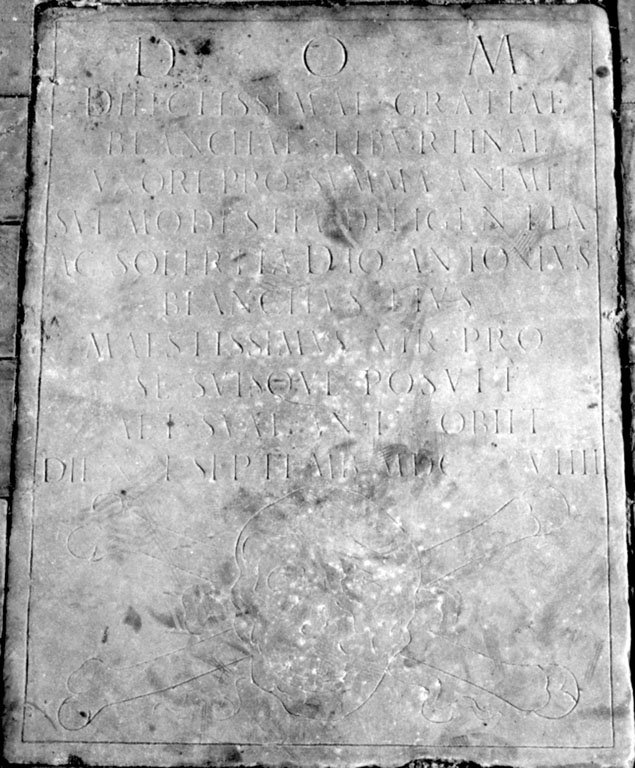 D O M
DILECTISSIMAE GRATIAE
BLANCHAE TIBVRTINAE
VXORI PRO SVMMA ANIMI
SVI MODESTIA DILIGENTIA
AC SOLERTIA D IO ANTONIVS
BLANCHVS EIVS
MAESTISSIMVS VIR PRO
SE SVISQVE POSVIT
AET SVAE AN OBIIT
DIE SEPTEMB